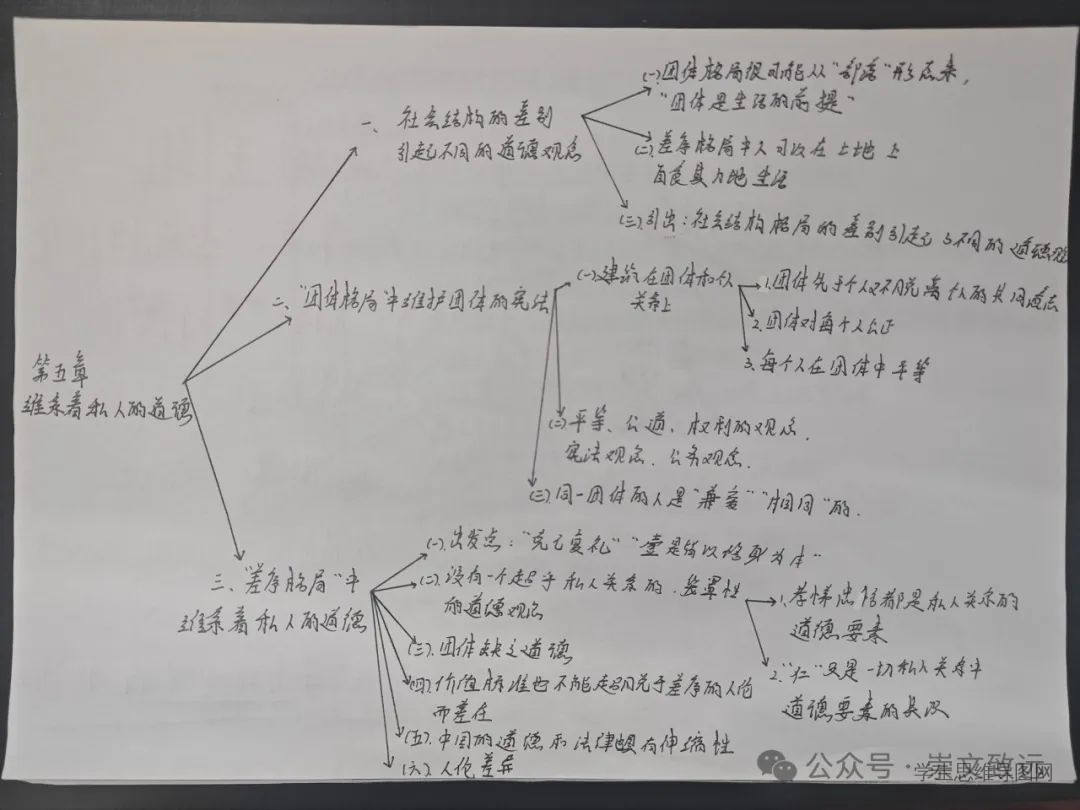 第五章
维系着私人的道德
一、社会结构的差别
引起不同的道德观念
(一)团体格局很可能从"部落"形态来,
"团体是生活的前提"
(二)差序格局中人可以在土地上
自食其力地生活
(三)引出:社会结构格局的差别引起了不同的道德观
二、"团体格局"中维护团体的宪法
(一)建筑在团体和个人
关系上
1.团体先于个人又不脱离个人的共同
2.团体对每个人公正
3.每个人在团体中平等
(二)平等、公道、权利的观念.
宪法观念、公务观念.
(三).同一团体的人是"兼爱" "相同"的.
三、"差序格局"中
维系着私人的道德
(一).出发点:"克己复礼" "壹是皆以修身为本"
(二).没有一个超乎私人关系的、笼罩性
的道德观念
1.孝悌忠信都是私人关系的
道德要素
2."仁"只是一切私人关系中
道德要素的共
(三).团体缺乏道德
(四).价值标准也不能超脱于差序的人伦
而存在
(五).中国的道德和法律也有伸缩性
(六).人伦差异
公众号·崇文致远
学生思维导图网